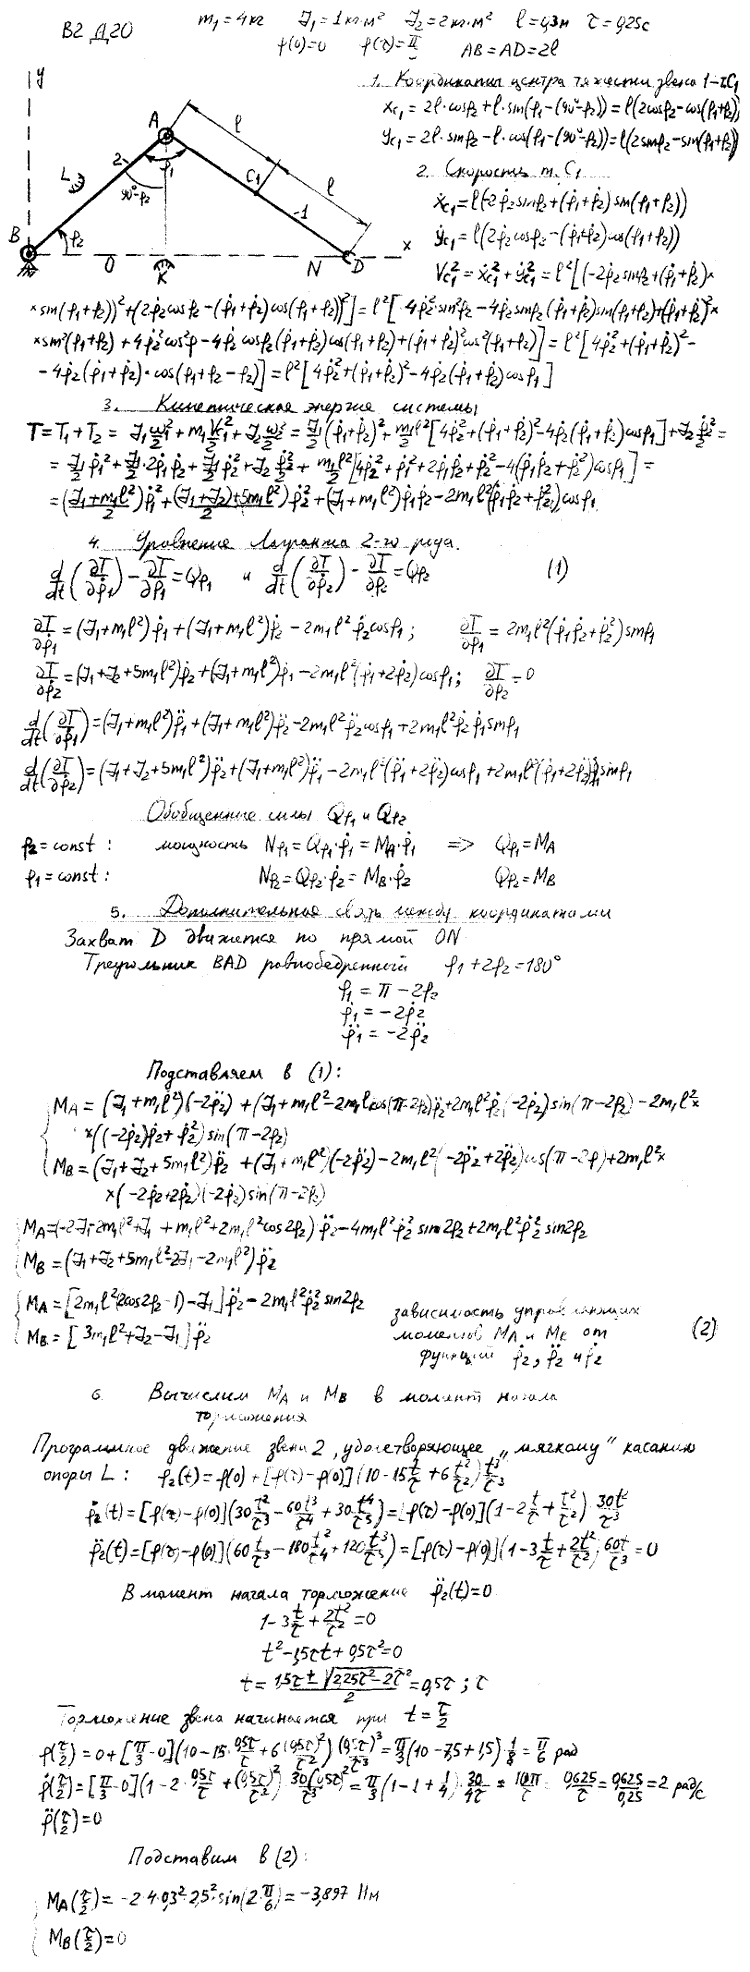 В2 Д20
m₁=4кг J₁=1кг·м² J₂=2кг·м² l=0,3м τ=0,25с
φ(0)=0 φ(τ)=π/3 AB=AD=2l
y
A
l
2
φ₁
90°-φ₂
C₁
l
L
1
B
φ₂
O
K
N
D
x
1. Координаты центра тяжести звена 1-т.C₁
x_C₁=2l·cosφ₂+l·sin(φ₁-(90°-φ₂))=l(2cosφ₂-cos(φ₁+φ₂))
y_C₁=2l·sinφ₂-l·cos(φ₁-(90°-φ₂))=l(2sinφ₂-sin(φ₁+φ₂))
2. Скорость т. C₁
ẋ_C₁=l(-2φ̇₂sinφ₂+(φ̇₁+φ̇₂)sin(φ₁+φ₂))
ẏ_C₁=l(2φ̇₂cosφ₂-(φ̇₁+φ̇₂)cos(φ₁+φ₂))
V_C₁²=ẋ_C₁²+ẏ_C₁²=l²[(-2φ̇₂sinφ₂+(φ̇₁+φ̇₂)×
×sin(φ₁+φ₂))²+(2φ̇₂cosφ₂-(φ̇₁+φ̇₂)cos(φ₁+φ₂))²]=l²[4φ̇₂²sin²φ₂-4φ̇₂sinφ₂(φ̇₁+φ̇₂)sin(φ₁+φ₂)+(φ̇₁+φ̇₂)²×
×sin²(φ₁+φ₂)+4φ̇₂²cos²φ-4φ̇₂cosφ₂(φ̇₁+φ̇₂)cos(φ₁+φ₂)+(φ̇₁+φ̇₂)²cos²(φ₁+φ₂)]=l²[4φ̇₂²+(φ̇₁+φ̇₂)²-
-4φ̇₂(φ̇₁+φ̇₂)·cos(φ₁+φ₂-φ₂)]=l²[4φ̇₂²+(φ̇₁+φ̇₂)²-4φ̇₂(φ̇₁+φ̇₂)cosφ₁]
3. Кинетическая энергия системы
T=T₁+T₂=J₁ω₁²/2+m₁V_C₁²/2+J₂ω₂²/2=J₁/2(φ̇₁+φ̇₂)²+m₁l²/2[4φ̇₂²+(φ̇₁+φ̇₂)²-4φ̇₂(φ̇₁+φ̇₂)cosφ₁]+J₂φ̇₂²/2=
=J₁/2φ̇₁²+J₁/2·2φ̇₁φ̇₂+J₁/2φ̇₂²+J₂φ̇₂²/2+m₁l²/2[4φ̇₂²+φ̇₁²+2φ̇₁φ̇₂+φ̇₂²-4(φ̇₁φ̇₂+φ̇₂²)cosφ₁]=
=(J₁+m₁l²)/2φ̇₁²+((J₁+J₂)+5m₁l²)/2φ̇₂²+(J₁+m₁l²)φ̇₁φ̇₂-2m₁l²(φ̇₁φ̇₂+φ̇₂²)cosφ₁
4. Уравнение Лагранжа 2-го рода.
d/dt(∂T/∂φ̇₁)-∂T/∂φ₁=Qφ₁ и d/dt(∂T/∂φ̇₂)-∂T/∂φ₂=Qφ₂ (1)
∂T/∂φ̇₁=(J₁+m₁l²)φ̇₁+(J₁+m₁l²)φ̇₂-2m₁l²φ̇₂cosφ₁; ∂T/∂φ₁=2m₁l²(φ̇₁φ̇₂+φ̇₂²)sinφ₁
∂T/∂φ̇₂=(J₁+J₂+5m₁l²)φ̇₂+(J₁+m₁l²)φ̇₁-2m₁l²(φ̇₁+2φ̇₂)cosφ₁; ∂T/∂φ₂=0
d/dt(∂T/∂φ̇₁)=(J₁+m₁l²)φ̈₁+(J₁+m₁l²)φ̈₂-2m₁l²φ̈₂cosφ₁+2m₁l²φ̇₂φ̇₁sinφ₁
d/dt(∂T/∂φ̇₂)=(J₁+J₂+5m₁l²)φ̈₂+(J₁+m₁l²)φ̈₁-2m₁l²(φ̈₁+2φ̈₂)cosφ₁+2m₁l²(φ̇₁+2φ̇₂)φ̇₁sinφ₁
Обобщенные силы Qφ₁ и Qφ₂
φ₂=const: мощность Nφ₁=Qφ₁·φ̇₁=M_A·φ̇₁ => Qφ₁=M_A
φ₁=const: Nφ₂=Qφ₂·φ̇₂=M_B·φ̇₂ Qφ₂=M_B
5. Дополнительная связь между координатами
Захват D движется по прямой ON
Треугольник BAD равнобедренный φ₁+2φ₂=180°
φ₁=π-2φ₂
φ̇₁=-2φ̇₂
φ̈₁=-2φ̈₂
Подставляем в (1):
M_A=(J₁+m₁l²)(-2φ̈₂)+(J₁+m₁l²-2m₁l²cos(π-2φ₂))φ̈₂+2m₁l²φ̇₂(-2φ̇₂)sin(π-2φ₂)-2m₁l²×
×((-2φ̇₂)φ̇₂+φ̇₂²)sin(π-2φ₂)
M_B=(J₁+J₂+5m₁l²)φ̈₂+(J₁+m₁l²)(-2φ̈₂)-2m₁l²(-2φ̈₂+2φ̈₂)cos(π-2φ)+2m₁l²×
×(-2φ̇₂+2φ̇₂)(-2φ̇₂)sin(π-2φ₂)
M_A=(-2J₁-2m₁l²+J₁+m₁l²+2m₁l²cos2φ₂)φ̈₂-4m₁l²φ̇₂²sin2φ₂+2m₁l²φ̇₂²sin2φ₂
M_B=(J₁+J₂+5m₁l²-2J₁-2m₁l²)φ̈₂
M_A=[2m₁l²(2cos2φ₂-1)-J₁]φ̈₂-2m₁l²φ̇₂²sin2φ₂
M_B=[3m₁l²+J₂-J₁]φ̈₂
зависимость управляющих
моментов M_A и M_B от
функций φ₂, φ̈₂ и φ̇₂ (2)
6. Вычислим M_A и M_B в момент начала
торможения
Программное движение звена 2, удовлетворяющее „мягкому" касанию
опоры L: φ₂(t)=φ(0)+[φ(τ)-φ(0)](10-15t/τ+6t²/τ²)t³/τ³
φ̇₂(t)=[φ(τ)-φ(0)](30t²/τ³-60t³/τ⁴+30t⁴/τ⁵)=[φ(τ)-φ(0)](1-2t/τ+t²/τ²)·30t²/τ³
φ̈₂(t)=[φ(τ)-φ(0)](60t/τ³-180t²/τ⁴+120t³/τ⁵)=[φ(τ)-φ(0)](1-3t/τ+2t²/τ²)60t/τ³=0
В момент начала торможения φ̈₂(t)=0
1-3t/τ+2t²/τ²=0
t²-1,5τt+0,5τ²=0
t=(1,5τ±√(2,25τ²-2τ²))/2=0,5τ; τ
Торможение звена начинается при t=τ/2
φ(τ/2)=0+[π/3-0](10-15·0,5τ/τ+6(0,5τ)²/τ²)(0,5τ)³/τ³=π/3(10-7,5+1,5)·1/8=π/6 рад
φ̇(τ/2)=[π/3-0](1-2·0,5τ/τ+(0,5τ)²/τ²)·30(0,5τ)²/τ³=π/3(1-1+1/4)·30/4τ=10π/τ 0,625/τ=0,625/0,25=2 рад/с
φ̈(τ/2)=0
Подставим в (2):
M_A(τ/2)=-2·4·0,3²·2,5²·sin(2·π/6)=-3,897 Нм
M_B(τ/2)=0